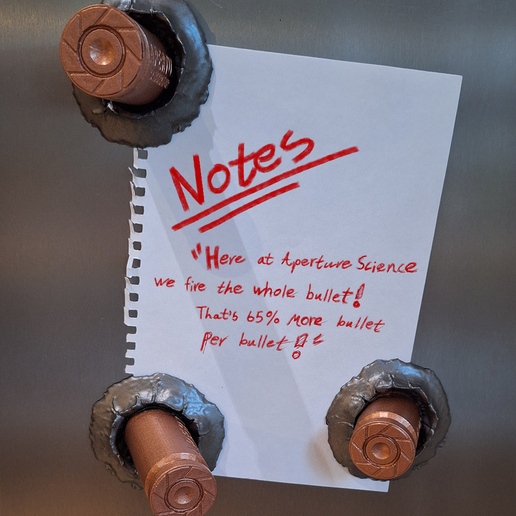 Notes
"Here at Aperture Science
we fire the whole bullet!
That's 65% more bullet
per bullet!"